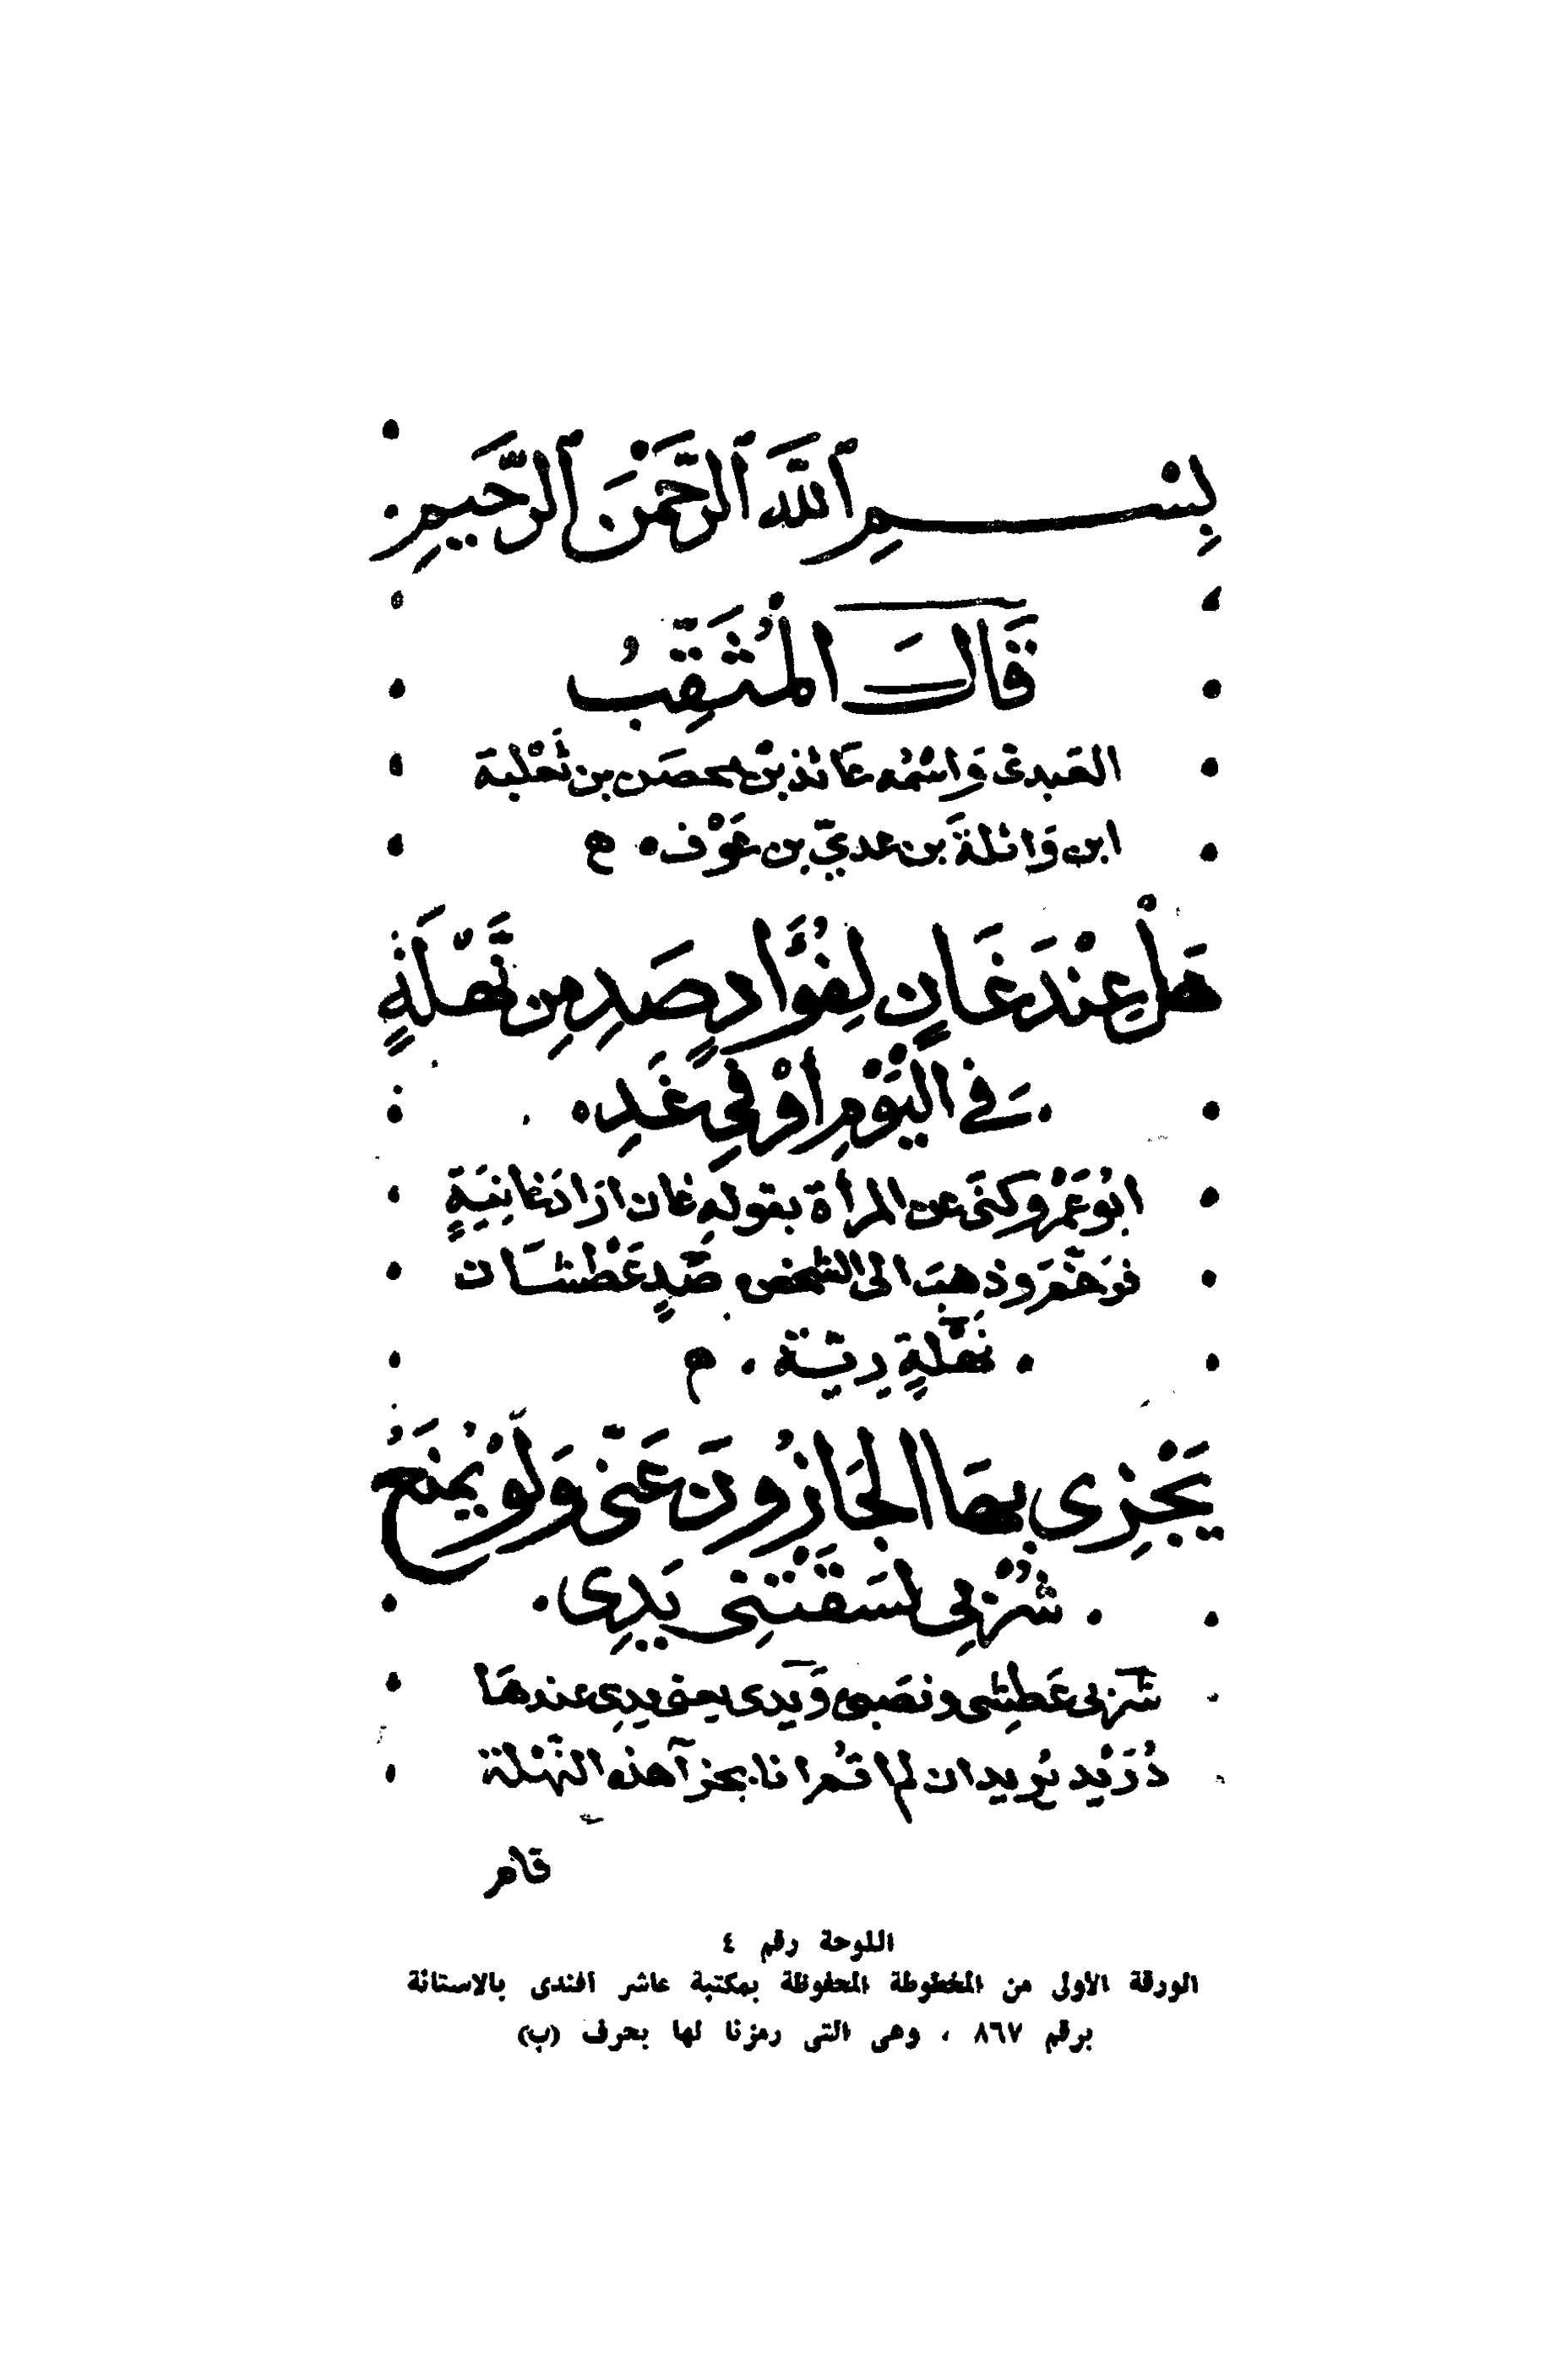 بِسْمِ ٱللَّهِ ٱلرَّحْمَنِ ٱلرَّحِيمِ
قَالَ المُثَقِّبُ
العبدىّ وَاسْمُه عَائذ بنُ محصَن بن ثَعْلبة
ابن وَائلةَ بن عديّ بن عَوْف ه
هَلْ عِنْدَ غَانٍ لِفُؤَادٍ صَدِ مِن نَهْلَةٍ
فى اليَوْمِ أَوْ فِي غَدِ
ابُو عَمْرو كنَى عن المرأة بقوله غان ارَادَ غانِيَةٍ
فرَخَّمَ وذهبَ الى الشخص صَدٍ عَطْشَان
نَهْلَةٍ رِيّة م
يَجْزِى بِهَا الجَازُونَ عَنّى وَلَوْ يُمْنَعُ
شُرْبِي لسَقَتْنِى يَدِى
شربى عَطِشى ونصَبى وَيَدى يعنى يدِى عندهَا
دُرَيْد يُريد ان لم اقم انا بجزآ هذه النَّهْلة
قام
اللوحة رقم ٤
الورقة الأولى من المخطوطة المحفوظة بمكتبة عاشر أفندى بالاستانة
برقم ٨٦٧ ، وهى التى رمزنا لها بحرف (ب)